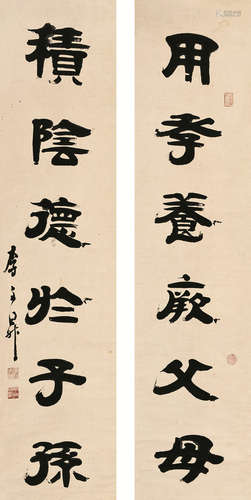 用孝養厥父母
積陰德於子孫
李